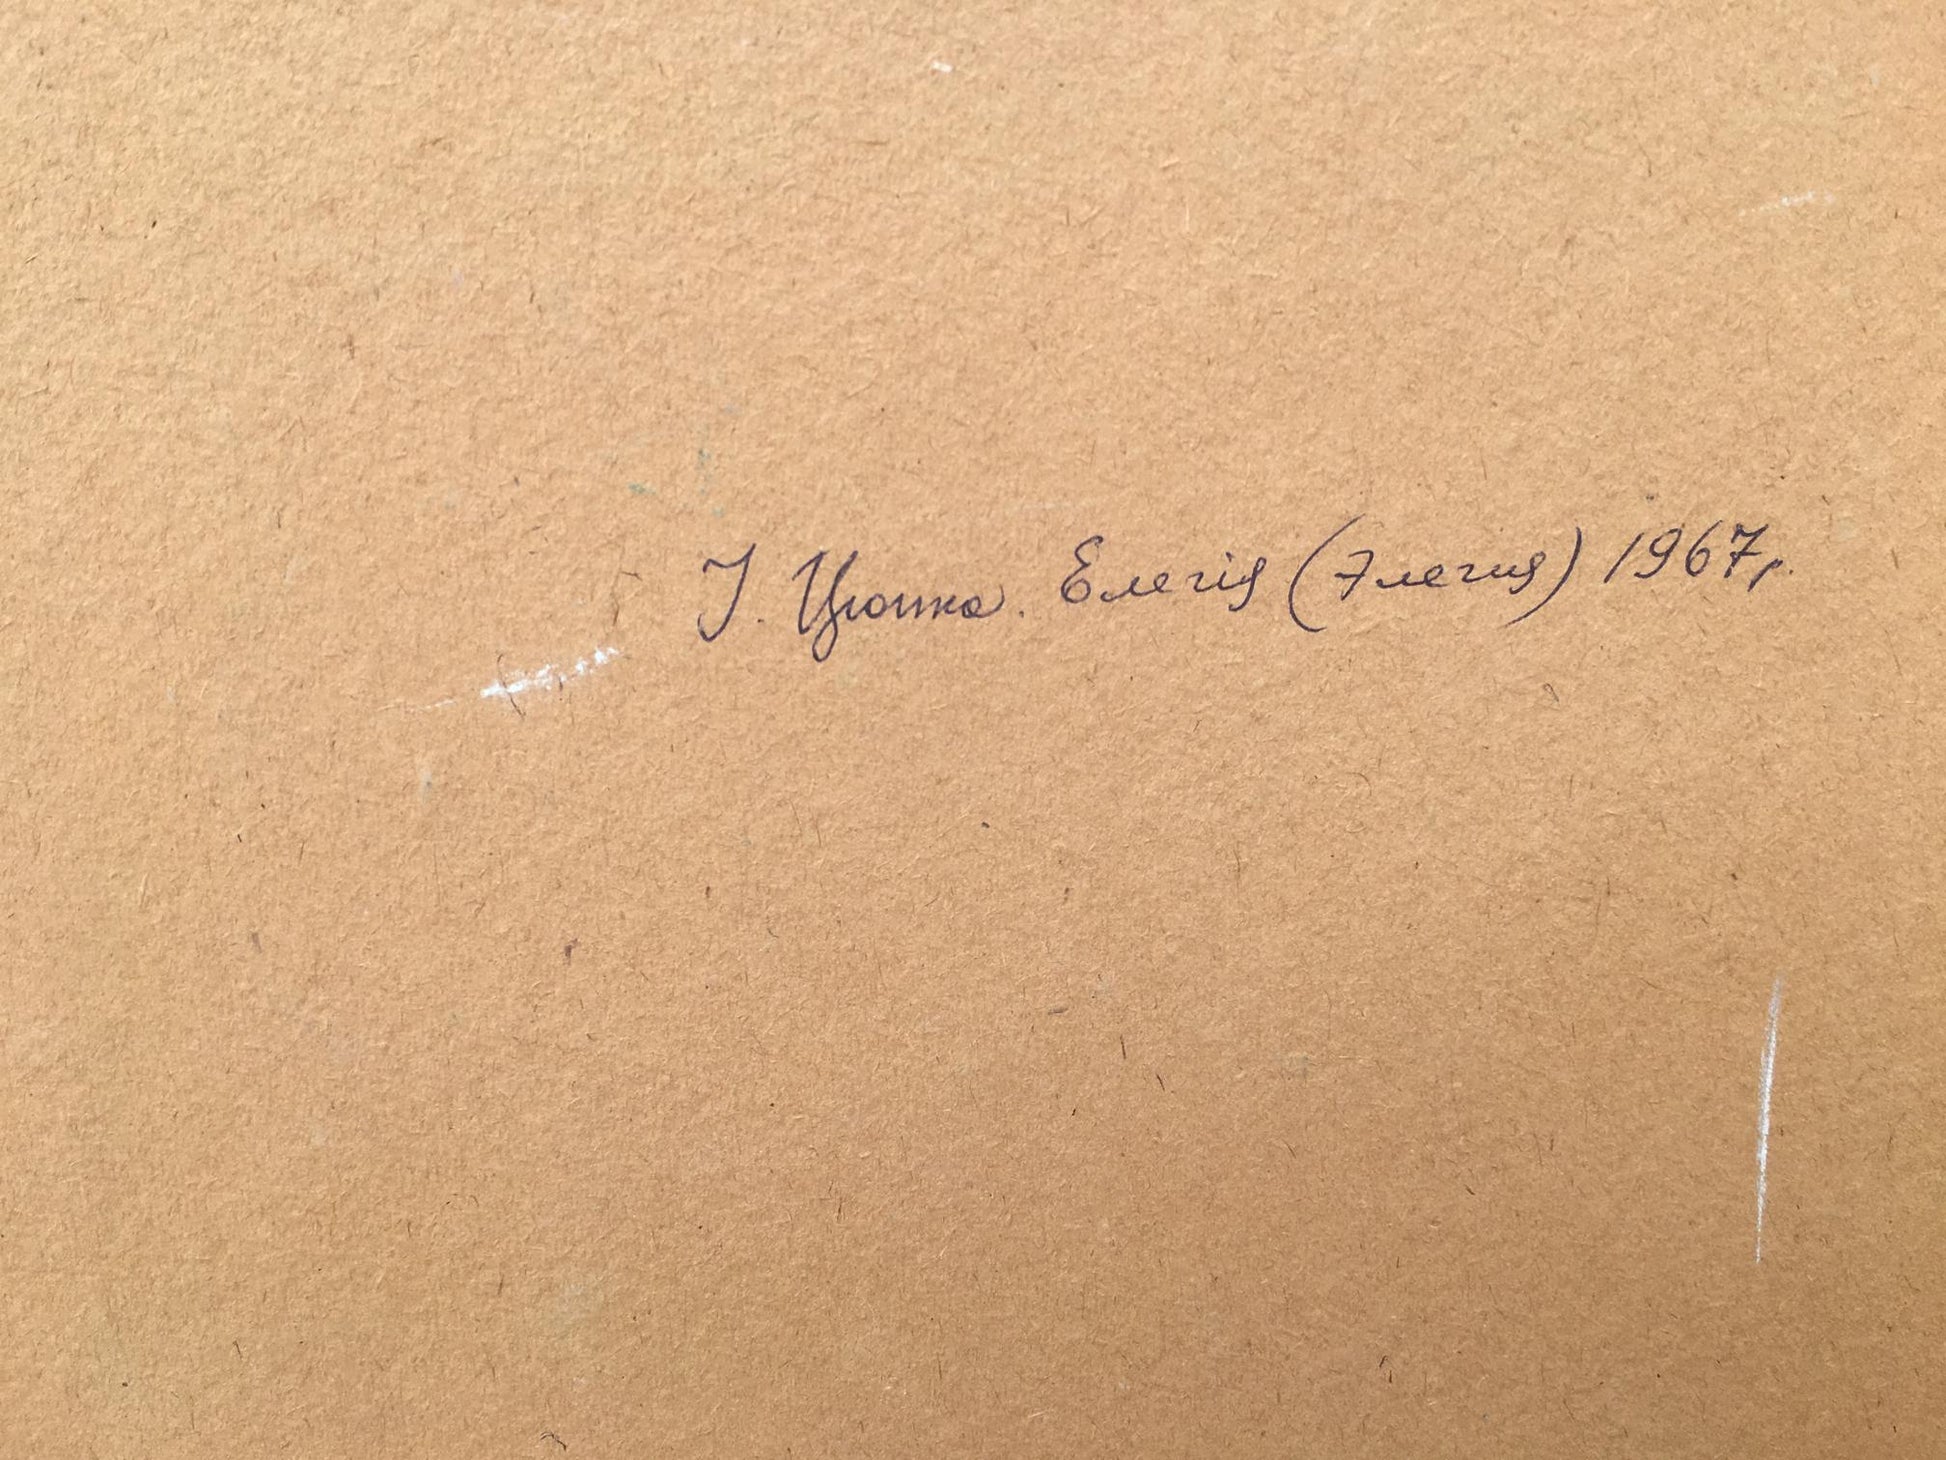 І. Цюпка. Елегія (Элегия) 1967г.